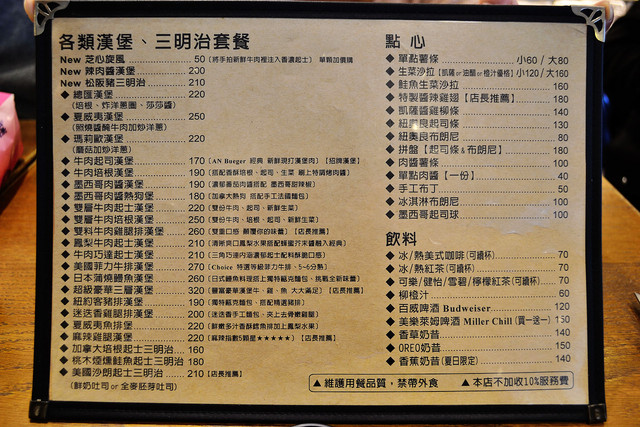 各類漢堡、三明治套餐
New 芝心旋風 50 (將手拍新鮮牛肉裡注入香濃起士) 單顆加價購
New 辣肉醬漢堡 200
New 松阪豬三明治 210
◆ 總匯漢堡 220
(培根、炸洋蔥圈、莎莎醬)
◆ 夏威夷漢堡 220
(照燒醬醃牛肉加炒洋蔥)
◆ 瑪莉歐漢堡 220
(蘑菇加炒洋蔥)
◆ 牛肉起司漢堡 170 (AN Bueger 經典 新鮮現打漢堡肉) 【招牌漢堡】
◆ 牛肉培根漢堡 190 (搭配香酥培根、起司、生菜 刷上特調烤肉醬)
◆ 墨西哥肉醬漢堡 190
◆ 墨西哥肉醬熱狗堡 180 (加拿大熱狗 搭配手工法國麵包)
◆ 雙層牛肉起士漢堡 220 (雙份牛肉、起司、新鮮生菜)
◆ 雙層牛肉培根漢堡 250 (雙份牛肉、培根、起司、新鮮生菜)
◆ 雙料牛肉雞腿排漢堡 260 (雙重口感 顛覆你的味蕾) 【店長推薦】
◆ 鳳梨牛肉起士漢堡 210
◆ 牛肉巧達起士漢堡 210
◆ 美國菲力牛排漢堡 270 (Choice 特選等級菲力牛排、5~6分熟)
◆ 日本蒲燒鰻魚漢堡 260
◆ 超級豪華三層漢堡 320 【店長推薦】
◆ 紐約客豬排漢堡 190
◆ 迷迭香雞腿排漢堡 200
◆ 夏威夷魚排堡 220
◆ 麻辣雞腿漢堡 220 (麻辣指數5顆星★★★★★) 【店長推薦】
◆ 加拿大培根起士三明治 160
◆ 桃木煙燻鮭魚起士三明治 180
◆ 美國沙朗起士三明治 210 【店長推薦】
(鮮奶吐司 or 全麥胚芽吐司)
點 心
◆ 單點薯條 小60 / 大80
◆ 生菜沙拉【凱薩or油醋or橙汁優格】小120 / 大160
◆ 鮭魚生菜沙拉 160
◆ 特製醬辣雞翅【店長推薦】 180
◆ 凱薩醬雞柳條 140
◆ 紐奧良起司條 130
◆ 紐奧良布朗尼 80
◆ 拼盤【起司條&布朗尼】 180
◆ 肉醬薯條 100
◆ 單點肉醬【一份】 40
◆ 手工布丁 50
◆ 冰淇淋布朗尼 100
◆ 墨西哥起司球 100
飲料
◆ 冰/熱美式咖啡 (可續杯) 70
◆ 冰/熱紅茶 (可續杯) 70
◆ 可樂/健怡/雪碧/檸檬紅茶 (可續杯) 70
◆ 柳橙汁 60
◆ 百威啤酒 Budweiser 120
◆ 美樂萊姆啤酒 Miller Chill (買一送一) 150
◆ 香草奶昔 140
◆ OREO奶昔 150
◆ 香蕉奶昔 (夏日限定) 140
▲維護用餐品質,禁帶外食 ▲本店不加收10%服務費